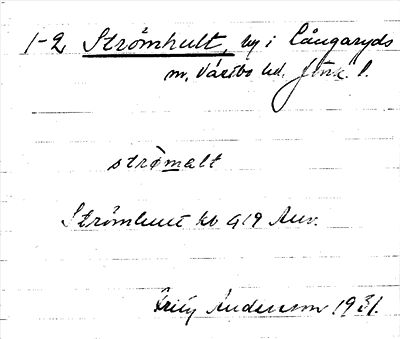 1-2 Strömhult, by i Långaryds
m, Västbo hd. Jönk. l.
strömalt
Strömhult kb 1919 Anv.
Fritz Andersson 1931.